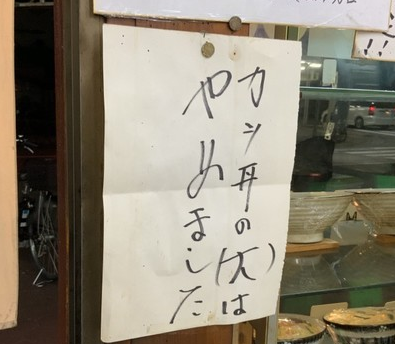 カツ丼の(大)は
やめました
!!